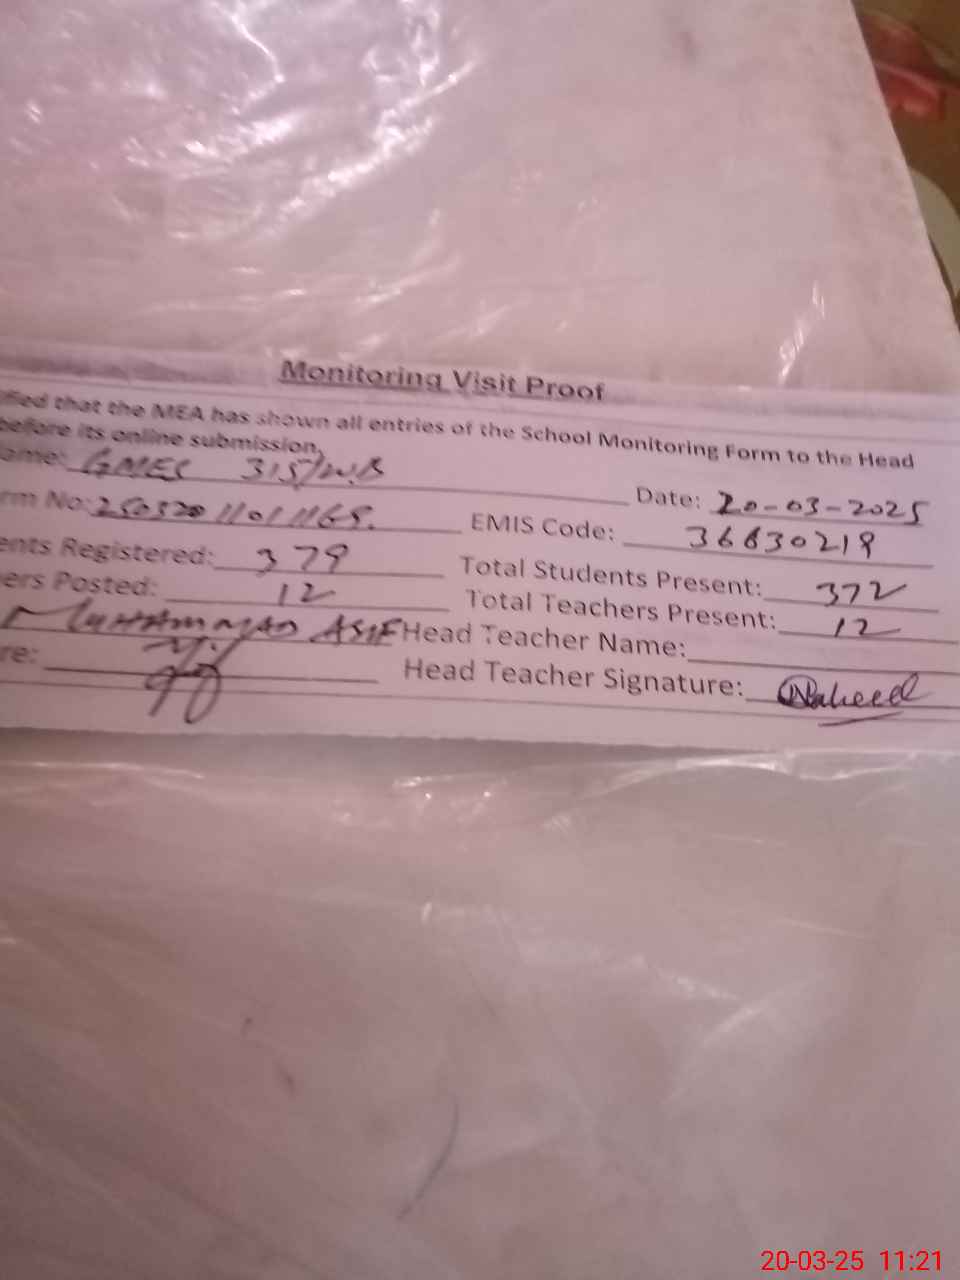 Monitoring Visit Proof
ified that the MEA has shown all entries of the School Monitoring Form to the Head
before its online submission.
ame: GMES 315/W.B Date: 20-03-2025
rm No: 250320 11011165. EMIS Code: 36630219
ents Registered: 379 Total Students Present: 372
ers Posted: 12 Total Teachers Present: 12
MUHAMMAD ASIF Head Teacher Name:
re: Head Teacher Signature: Naheed
20-03-25 11:21